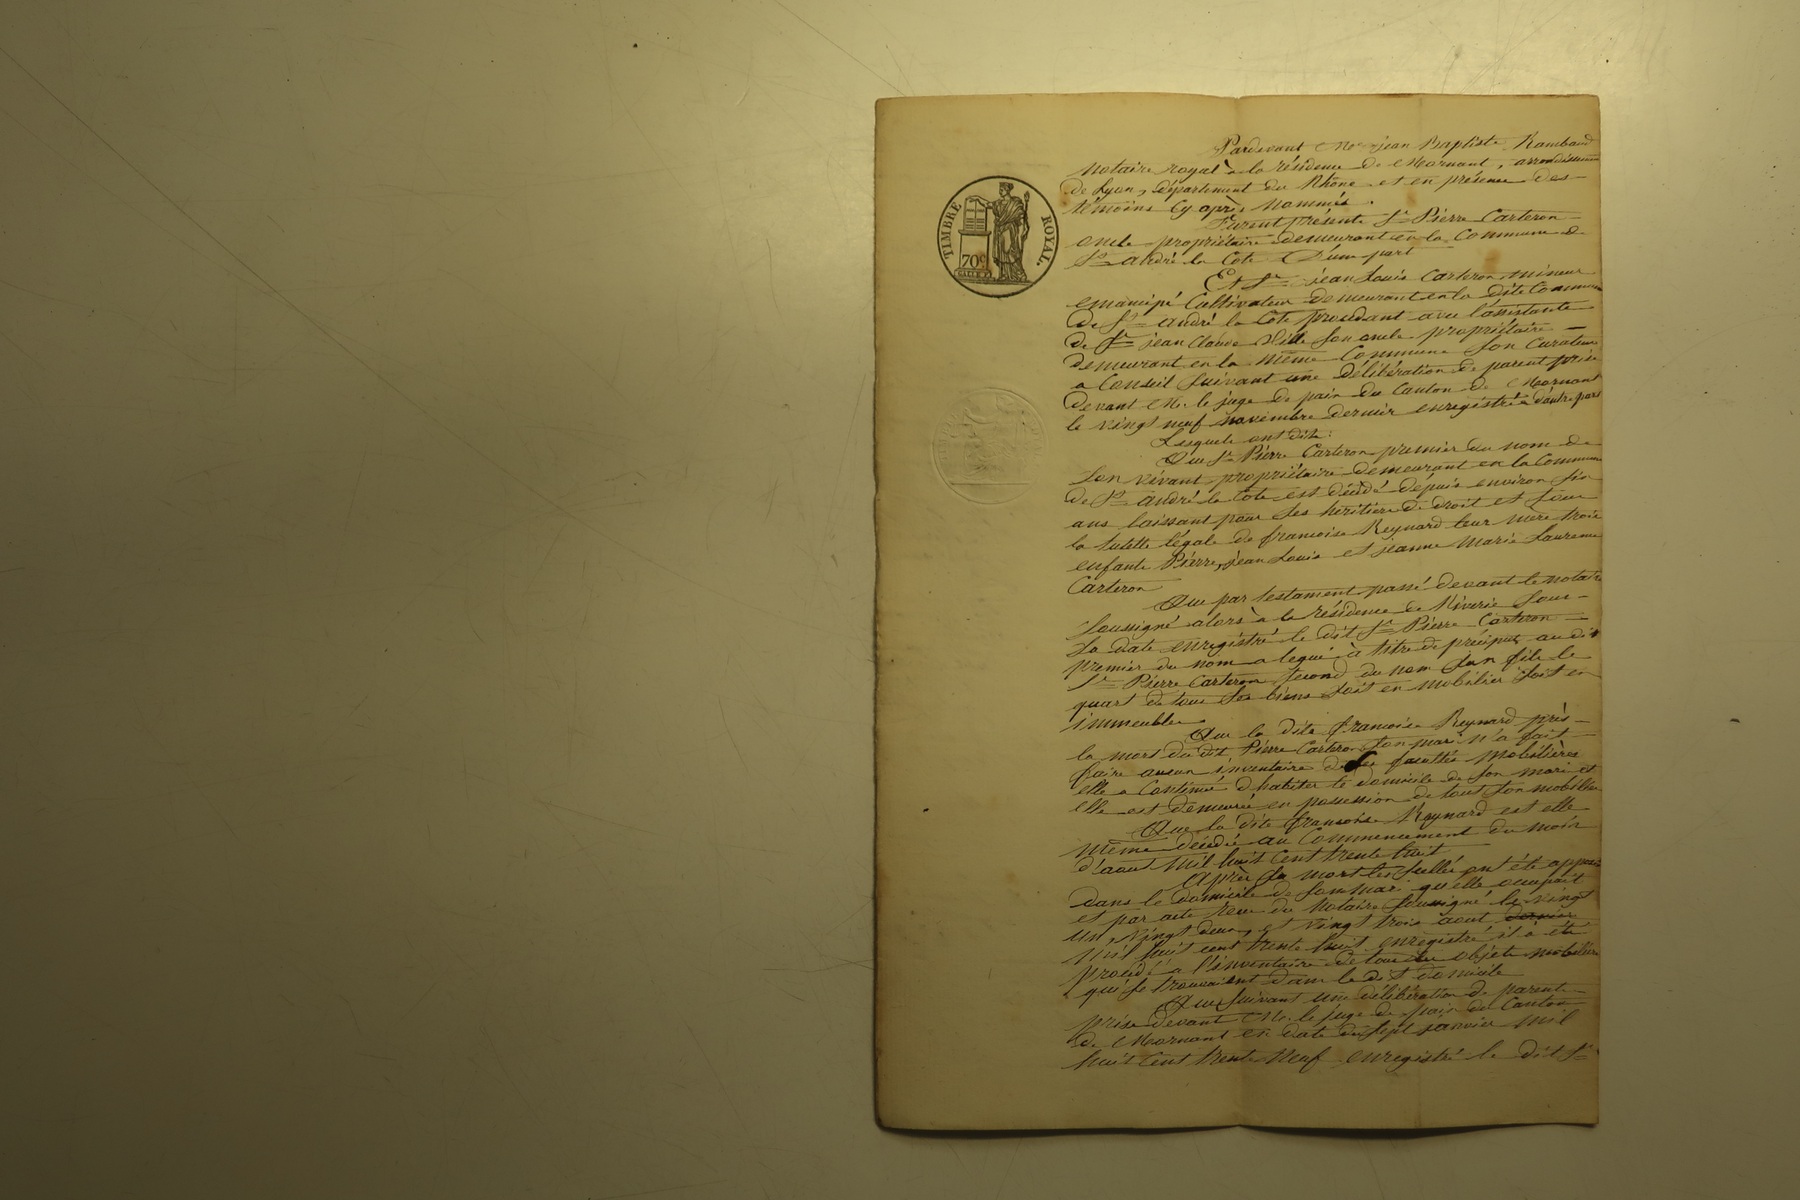 TIMBRE ROYAL.
70c
Pardevant Me jean Baptiste Rambaud
notaire royal à la résidence de Mornant, arrondissement
de Lyon, département du Rhône et en présence des
témoins cy après nommés.
Furent présents Sr Pierre Carteron
oncle propriétaire demeurant en la Commune de
St andré la Cote D'une part
Et Sr jean Louis Carteron mineur
emancipé Cultivateur demeurant en la dite Commune
de St andré la Cote procédant avec l'assistante
de Sr jean Claude son oncle propriétaire
demeurant en la même Commune son Curateur
a Conseil suivant une délibération de parents prise
devant Mr le juge de paix du Canton de Mornant
le vingt neuf novembre dernier enregistré d'autre part
Lesquels ont dits:
Que Sr Pierre Carteron premier du nom de
son vivant propriétaire demeurant en la Commune
de St andré la Cote est décédé dépuis environ six
ans laissant pour ses héritiers de droit et sous
la tutelle légale de francoise Reynard leur mère trois
enfants Pierre, jean Louis et jeanne Marie Laurence
Carteron
Que par testament passé devant le notaire
soussigné alors à la résidence de Riverie sous
sa date enregistré le dit Sr Pierre Carteron
premier du nom a legué à titre de préciput au dit
Sr Pierre Carteron second du nom son fils le
quart de tous ses biens soit en mobilier soit en
immeubles
Que la dite francoise Reynard près
la mort du dit Pierre Carteron son mari n'a fait
faire aucun inventaire de ses facultés mobilières
elle a Continué d'habiter le domicile de son mari et
elle est demeurée en possession de tout son mobilier
Que la dite francoise Reynard est elle
même décédé au Commencement du mois
d'aout mil huit cent trente huit
Après sa mort les scellés ont été apposés
dans le domicile de son mari qu'elle occupait
et par acte reçu du notaire soussigné les vingt
un, vingt deux, et vingt trois aout dernier
mil huit cent trente huit enregistré il a été
procédé a l'inventaire de tous les objets mobiliers
qui se trouvaient dans le dit domicile
Que suivant une délibération de parents
prise devant Mr le juge de paix du Canton
de Mornant en date du sept janvier mil
huit cent trente neuf enregistré le dit Sr